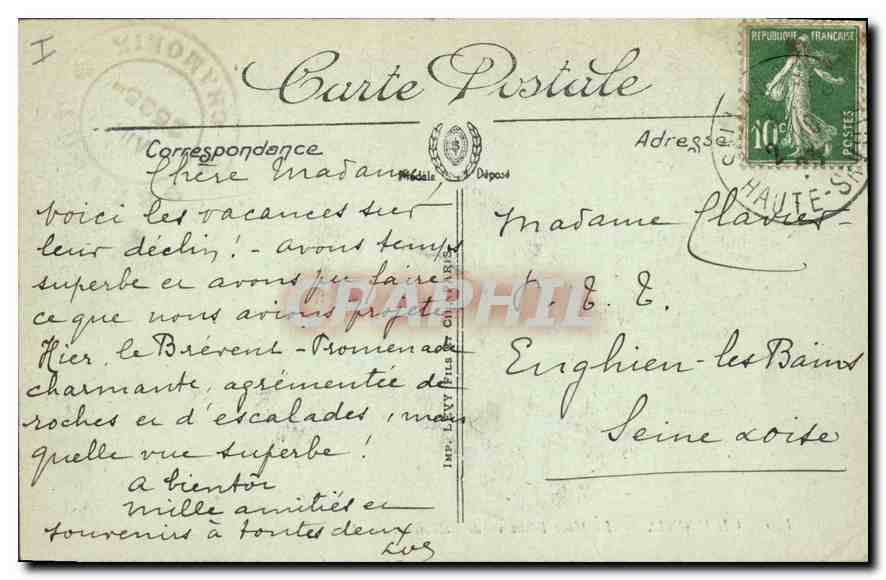 I
Carte Postale
REPUBLIQUE FRANÇAISE
10c
POSTES
HAUTE-S
CHAMONIX
Correspondance
Modèle Déposé
Adresse
Chère Madame,
voici les vacances sur
leur déclin! - avons temps
superbe et avons pu faire
ce que nous avions projeté
Hier, le Brévent - Promenade
charmante, agrémentée de
roches et d'escalades, mais
quelle vue superbe!
A bientôt
Mille amitiés et
souvenirs à toutes deux
IMP. LEVY FILS ET Cie PARIS
Madame Clavier
P. T. T.
Enghien-les Bains
Seine & Oise
CPAPHIL